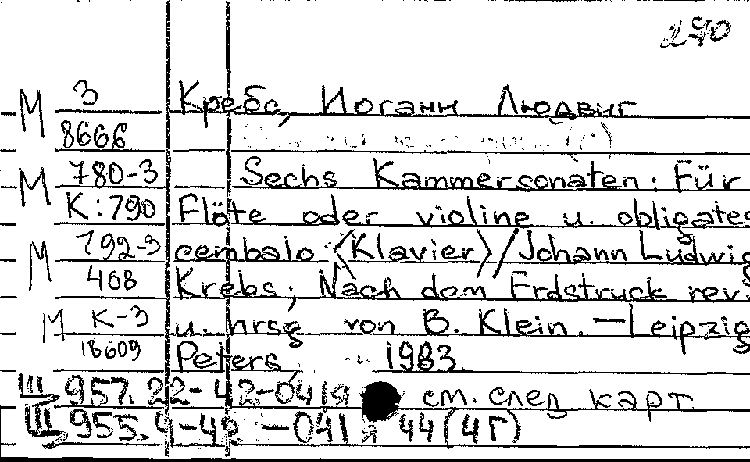 290
М 3 Кребс, Иоганн Людвиг
8666
М 780-3 Sechs Kammersonaten: Für
К:790 Flöte oder violine u. obligates
М 792-3 cembalo <Klavier>/Johann Ludwig
408 Krebs; Nach dem Erdstruck rev.
М К-3 u. hrsg von B. Klein. — Leipzig
18609 Peters, 1983.
III 957. 22-42-041я см. след карт.
III 955. 4-42-041я 44(4Г)